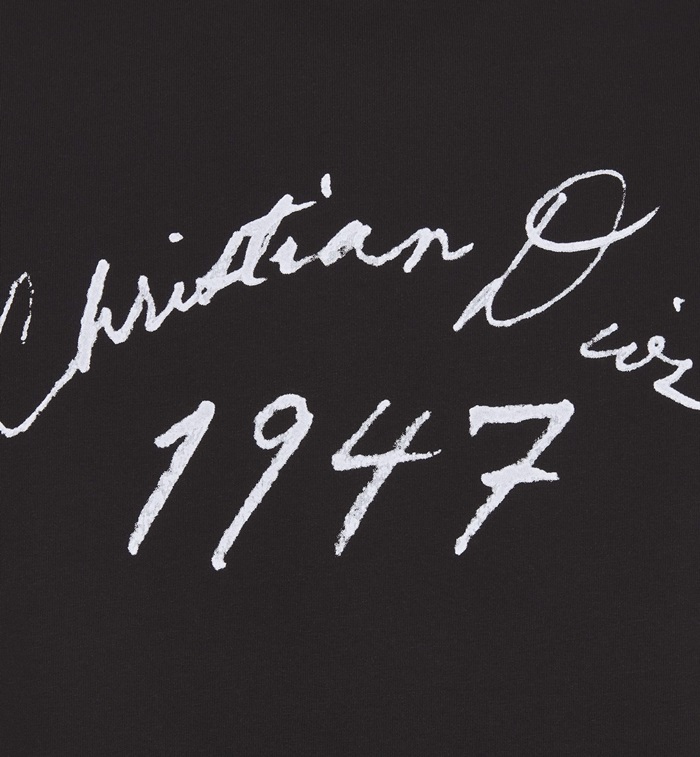 Christian Dior
1947